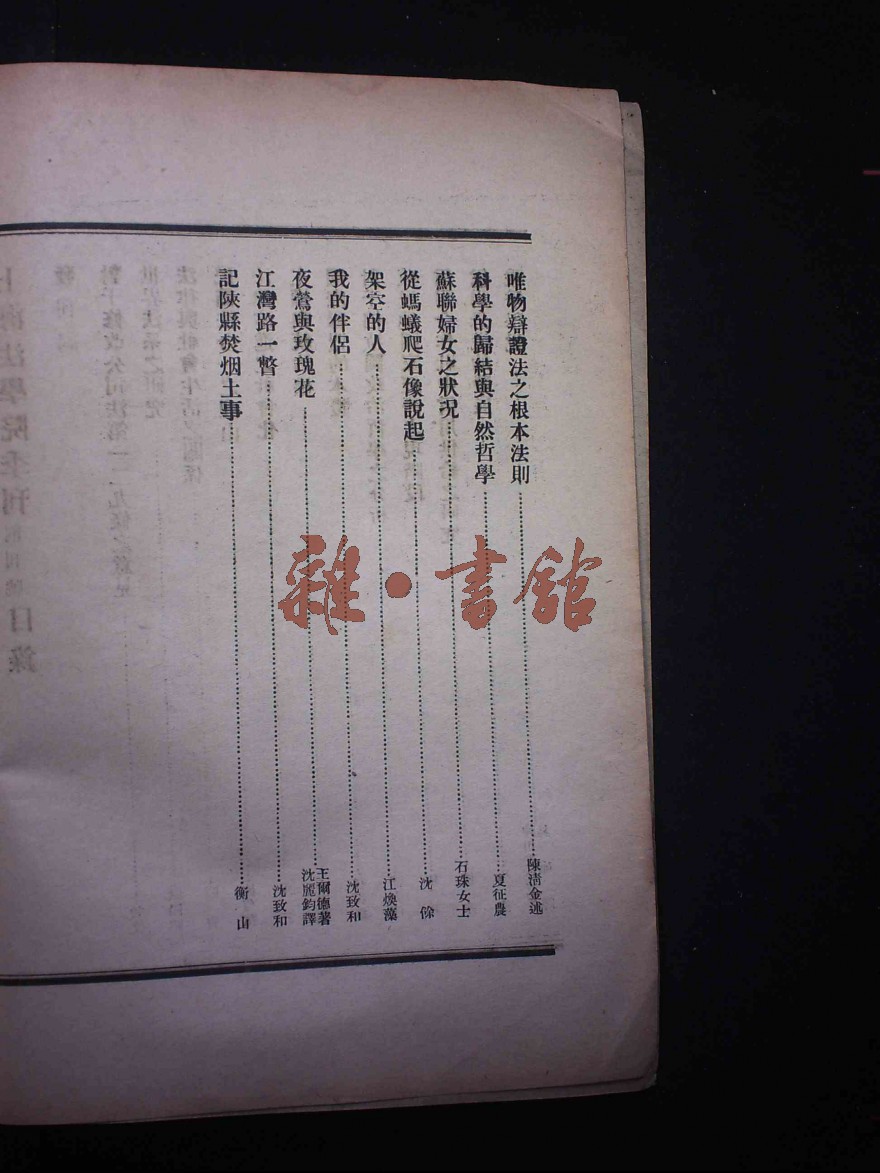 唯物辯證法之根本法則……陳淸金述
科學的歸結與自然哲學……夏征農
蘇聯婦女之狀况……石珠女士
從螞蟻爬石像說起……沈 餘
架空的人……江煥藻
我的伴侶……沈致和
夜鶯與玫瑰花……王爾德著 沈麗鈞譯
江灣路一瞥……沈致和
記陝縣焚烟土事……衡 山
雜·書館